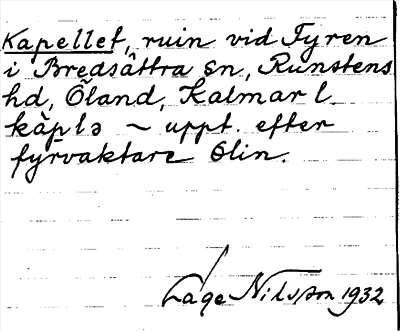 Kapellet, ruin vid Fyren
i Bredsättra sn, Runstens
hd, Öland, Kalmar l.
käplə ~ uppt. efter
fyrvaktare Olin.
Lage Nilsson 1932